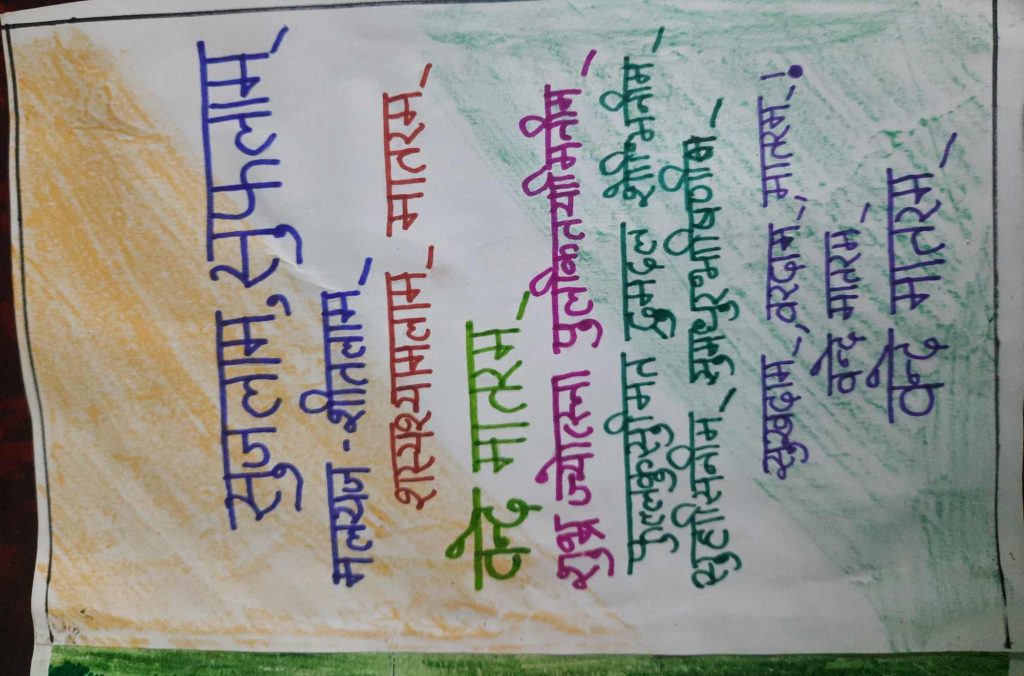 सुजलाम्, सुफलाम्
मलयज - शीतलाम्
शस्यश्यामलाम् मातरम्
वन्दे मातरम्
शुभ्र ज्योत्स्ना पुलकितयामिनीम्
फुल्लकुसुमित द्रुमदल शोभिनीम्
सुहासिनीम् सुमधुरभाषिणीम्
सुखदाम्, वरदाम्, मातरम्!
वन्दे मातरम्
वन्दे मातरम्